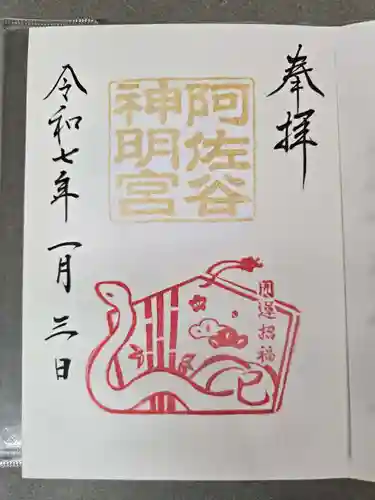 奉拝
阿佐谷
神明宮
開運招福
巳
令和七年一月三日